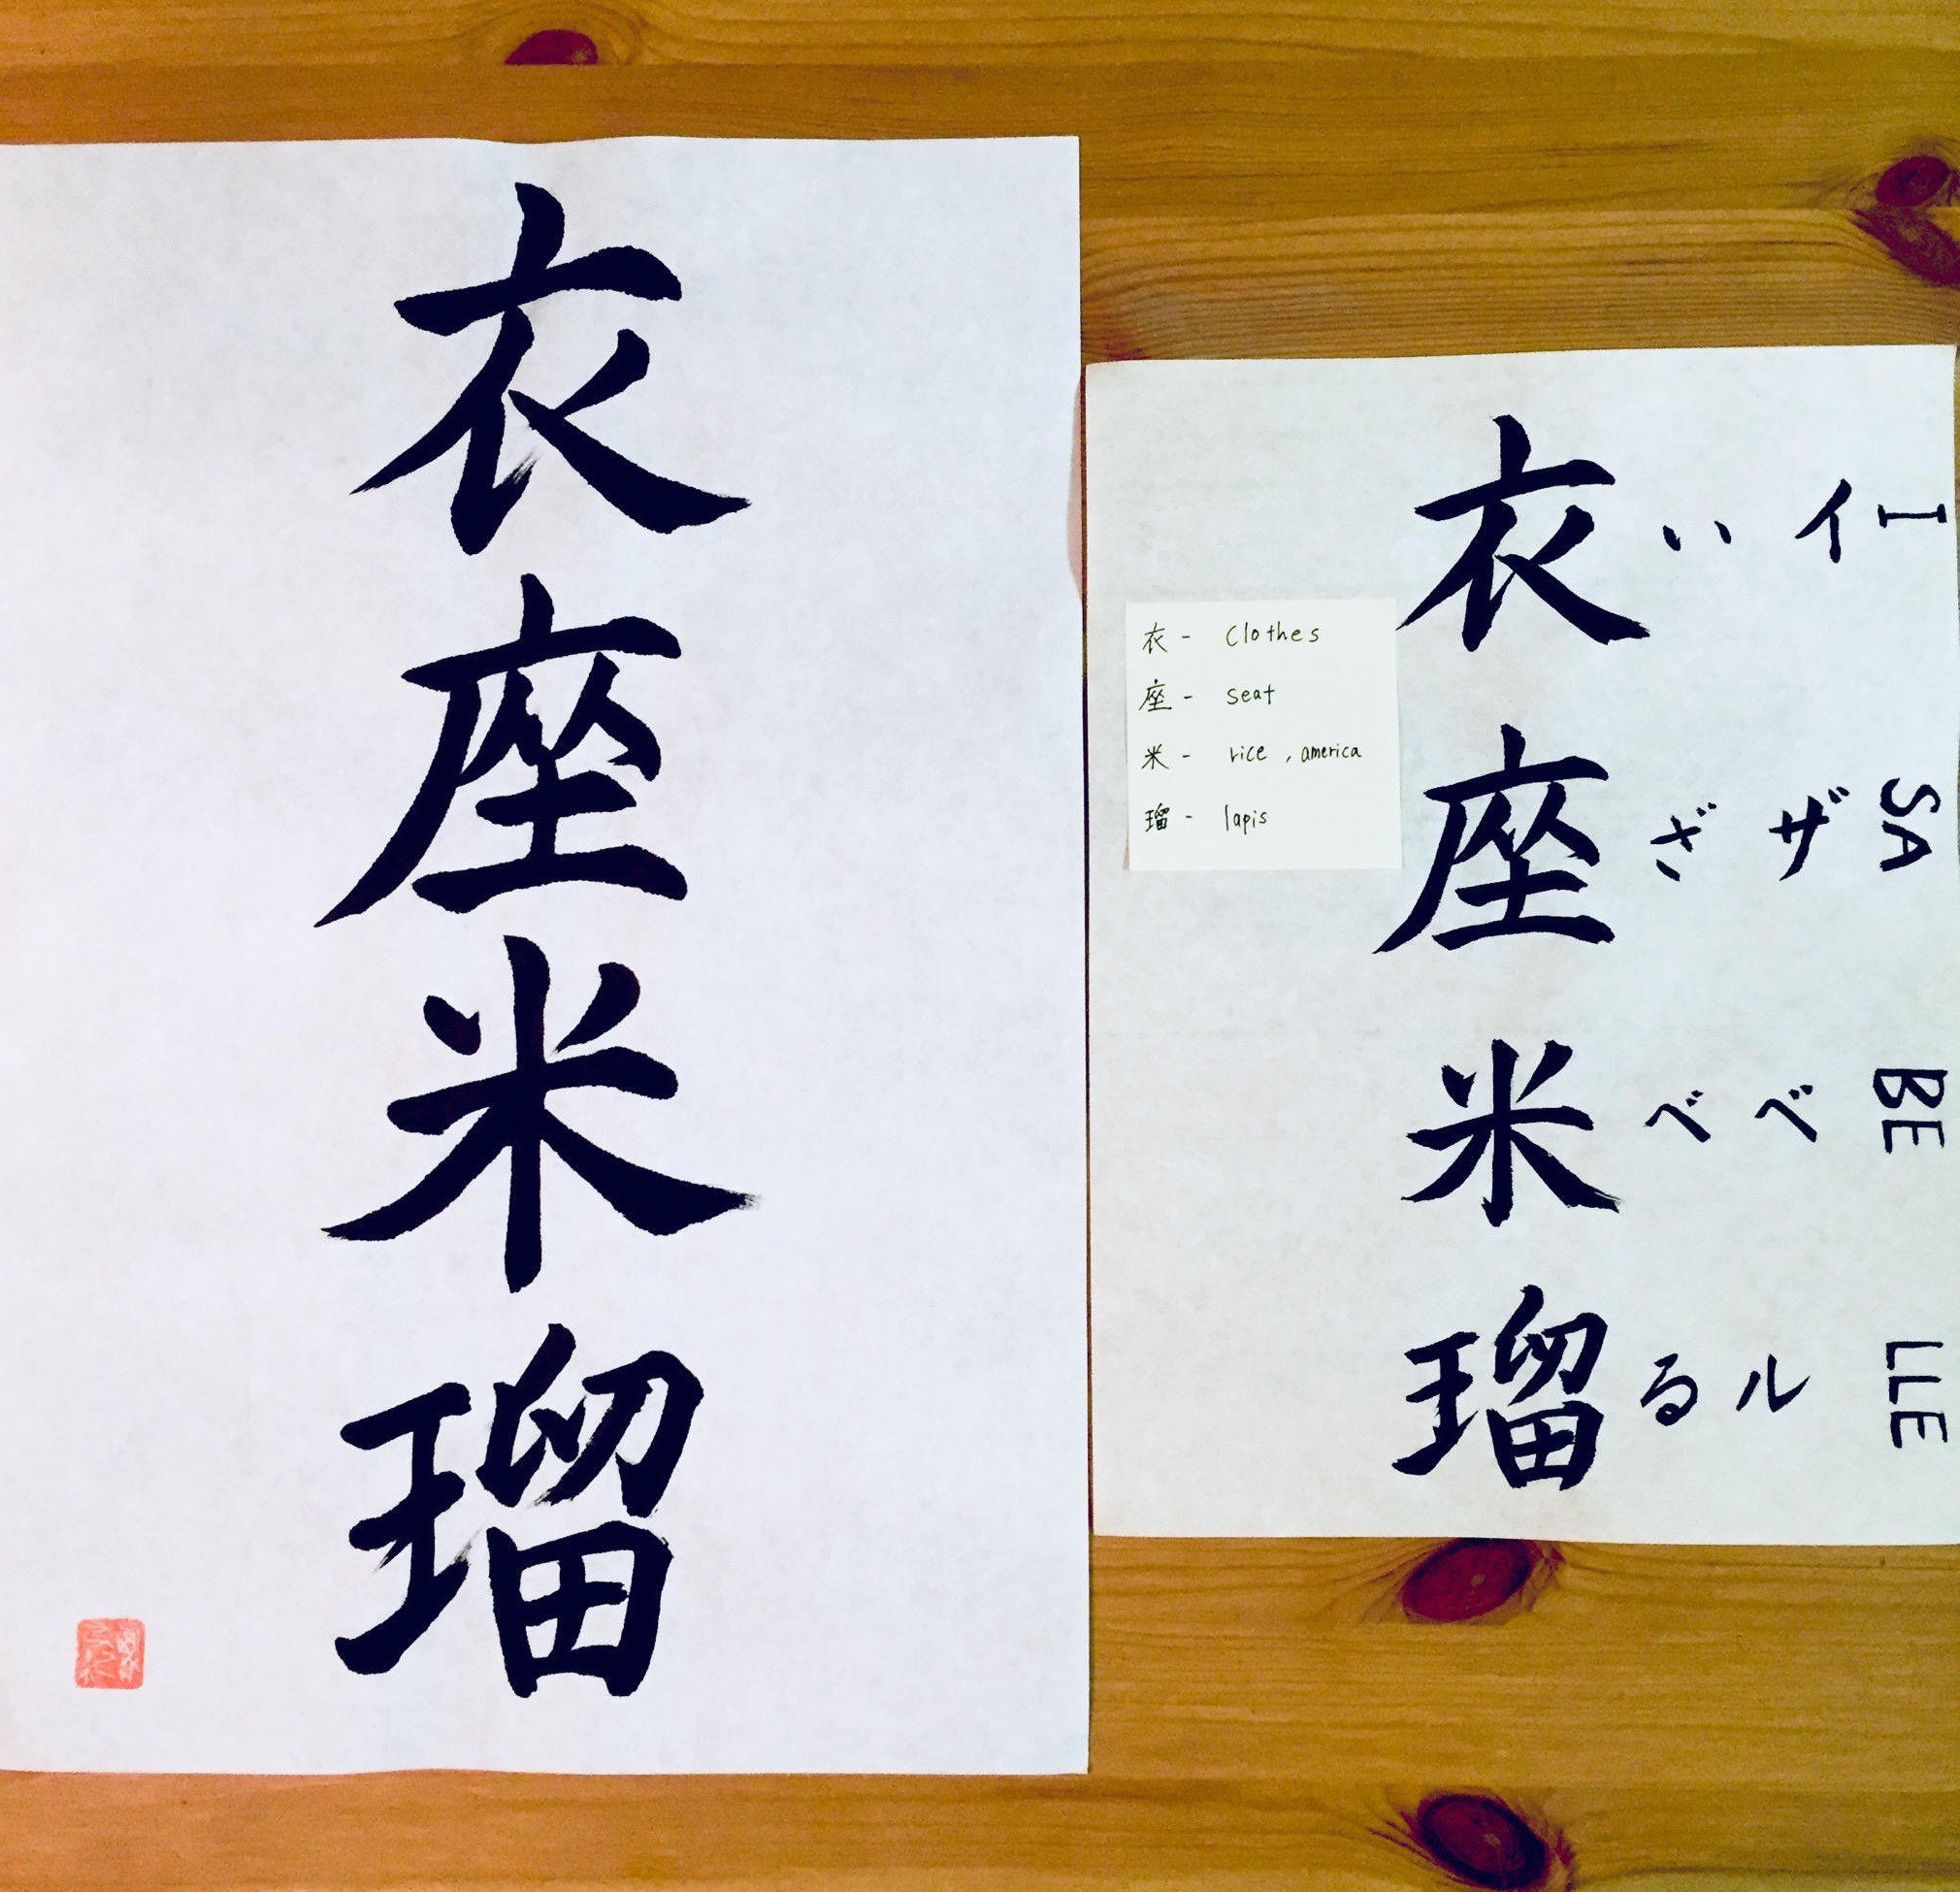 衣座米瑠
ISABELLE
イザベル
いざべる
衣座米瑠
衣 - Clothes
座 - seat
米 - rice , america
瑠 - lapis